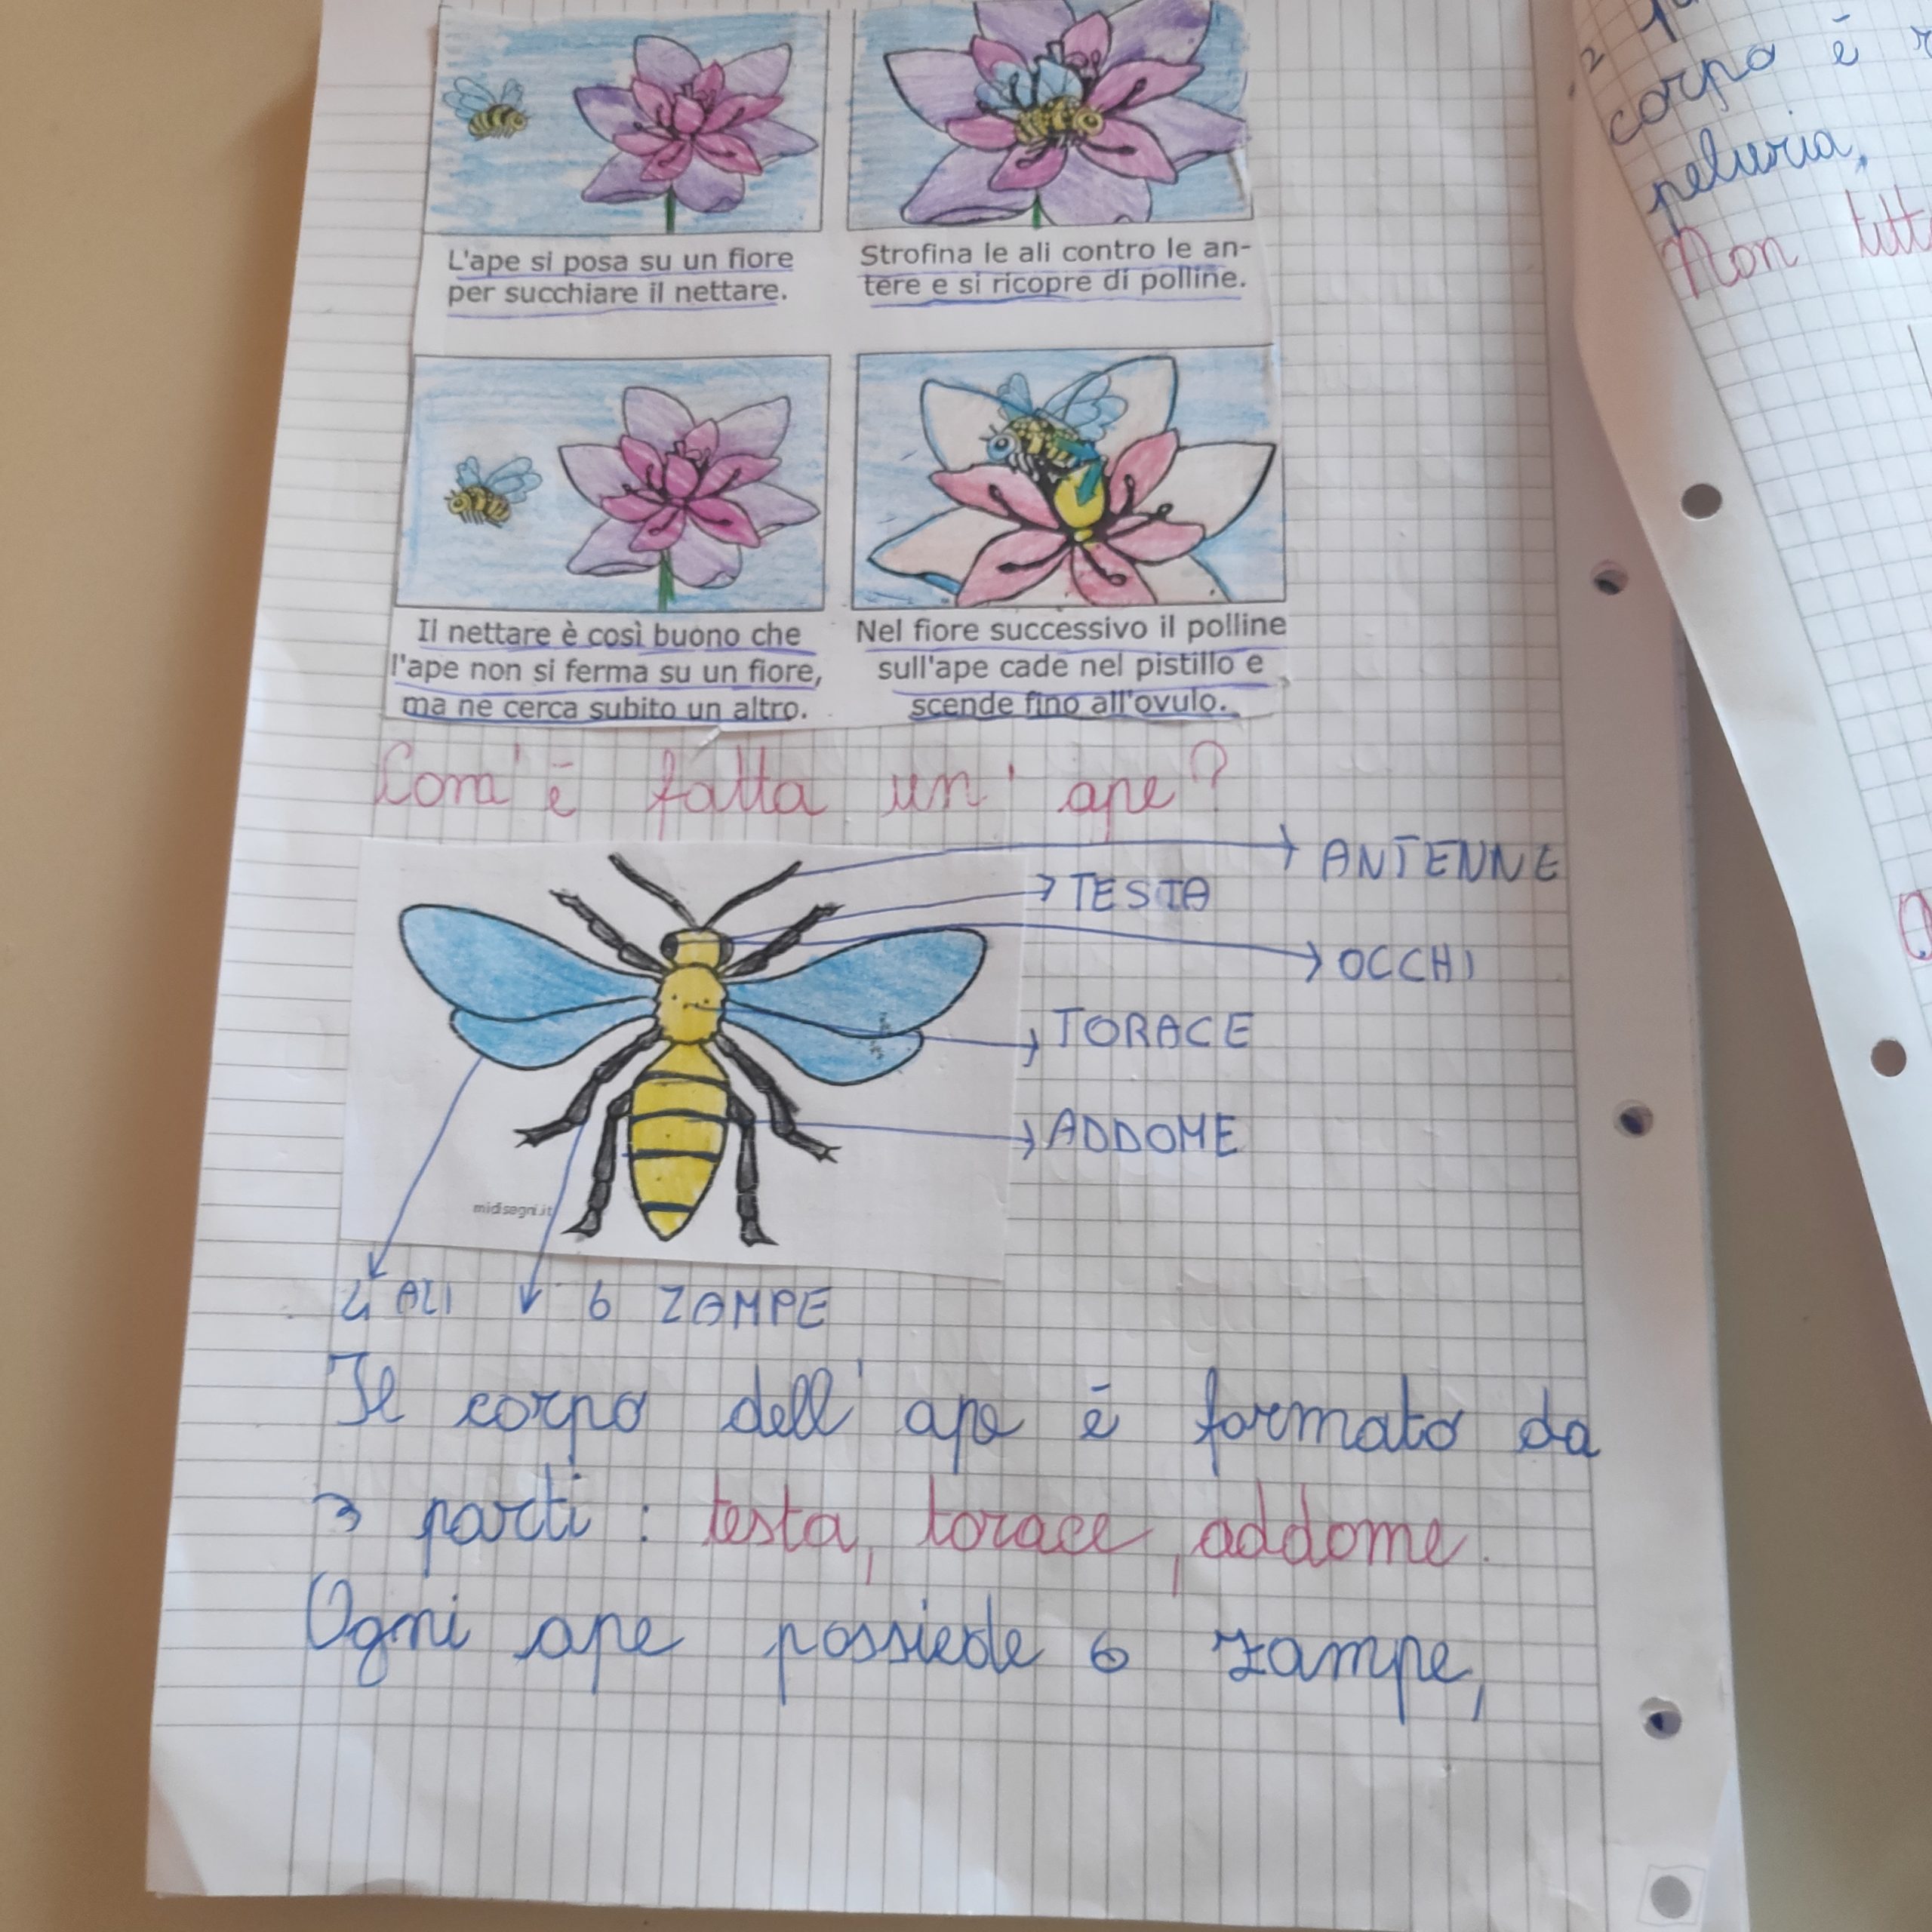 L'ape si posa su un fiore
per succhiare il nettare.
Strofina le ali contro le an-
tere e si ricopre di polline.
Il nettare è così buono che
l'ape non si ferma su un fiore,
ma ne cerca subito un altro.
Nel fiore successivo il polline
sull'ape cade nel pistillo e
scende fino all'ovulo.
Com'è fatta un'ape?
ANTENNE
TESTA
OCCHI
TORACE
ADDOME
midisegni.it
4 ALI
6 ZAMPE
Il corpo dell'ape è formato da
3 parti: testa, torace, addome.
Ogni ape possiede 6 zampe,
2
corpo è
peluria,
Non